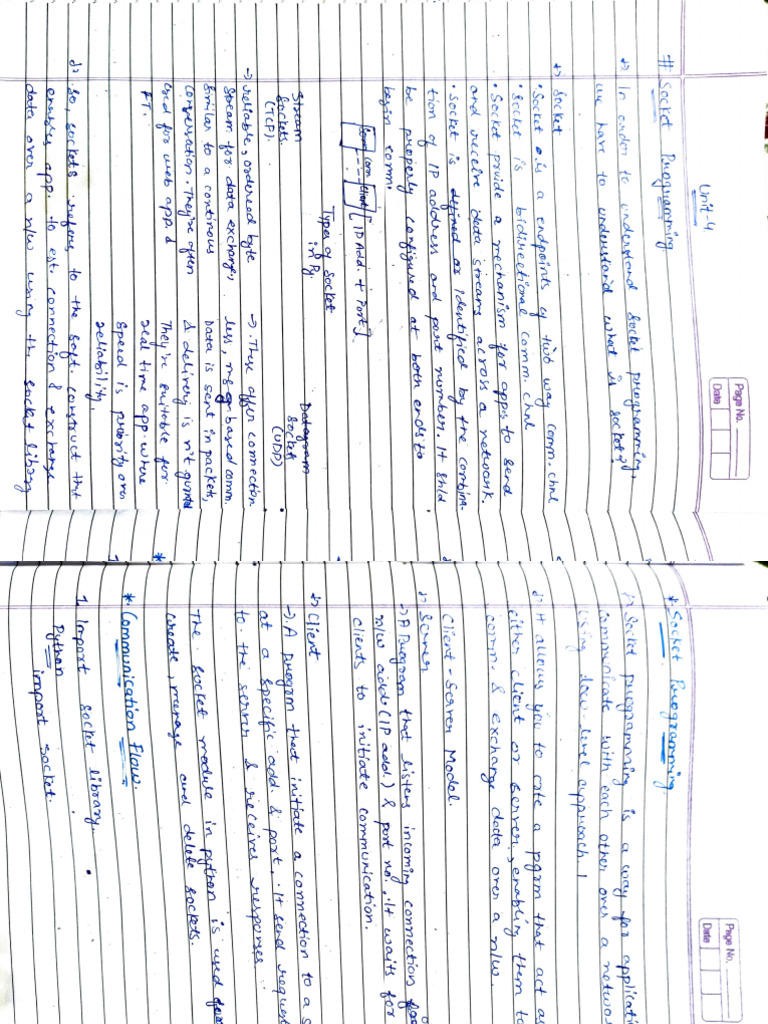 Page No.
Date
Unit-4
# Socket Programming
In order to understand socket programming,
we have to understand what is socket?
Socket
• Socket is a endpoints of two way comm. chnl
• Socket is bidirectional comm. chnl
• Socket provide a mechanism for apps to send
and receive data streams across a network.
• Socket is defined or identified by the combina-
tion of IP address and port number. It shld
be properly configured at both ends to
begin comm.
IP Add. + Port
Types of Socket
in Py.
Stream
Sockets.
(TCP).
→ reliable, ordered byte
stream for data exchange,
similar to a continous
conversation. They're often
used for web app. &
FT.
Datagram
Socket
(UDP)
→ These offer connection
less, msg based comm.
Data is sent in packets,
& delivery is n't
They're suitable for
real time app. where
speed is priority over
reliability.
So, sockets refers to the soft. construct tht
enables app. to est. connection & exchange
data over a n/w using the socket library
Page No.
Date
* Socket Programming
Socket programming is a way for applicati
communicate with each other over a networ
using low-level approach
It allows you to a pgrm that act as
either client or server, enabling them to
comm. & exchange data over a n/w.
Client-Server Model.
Server
→ A Program that listens incoming connection for
n/w add. (IP add.) & port no., It waits for
clients to initiate communication.
Client
→ A Program that initiate a connection to a s
at a specific add. & port. It send request
to the server & receives responses
The socket module in python is used for
create, manage and delete sockets.
* Communication Flow.
1. Import socket library.
Python
import socket.